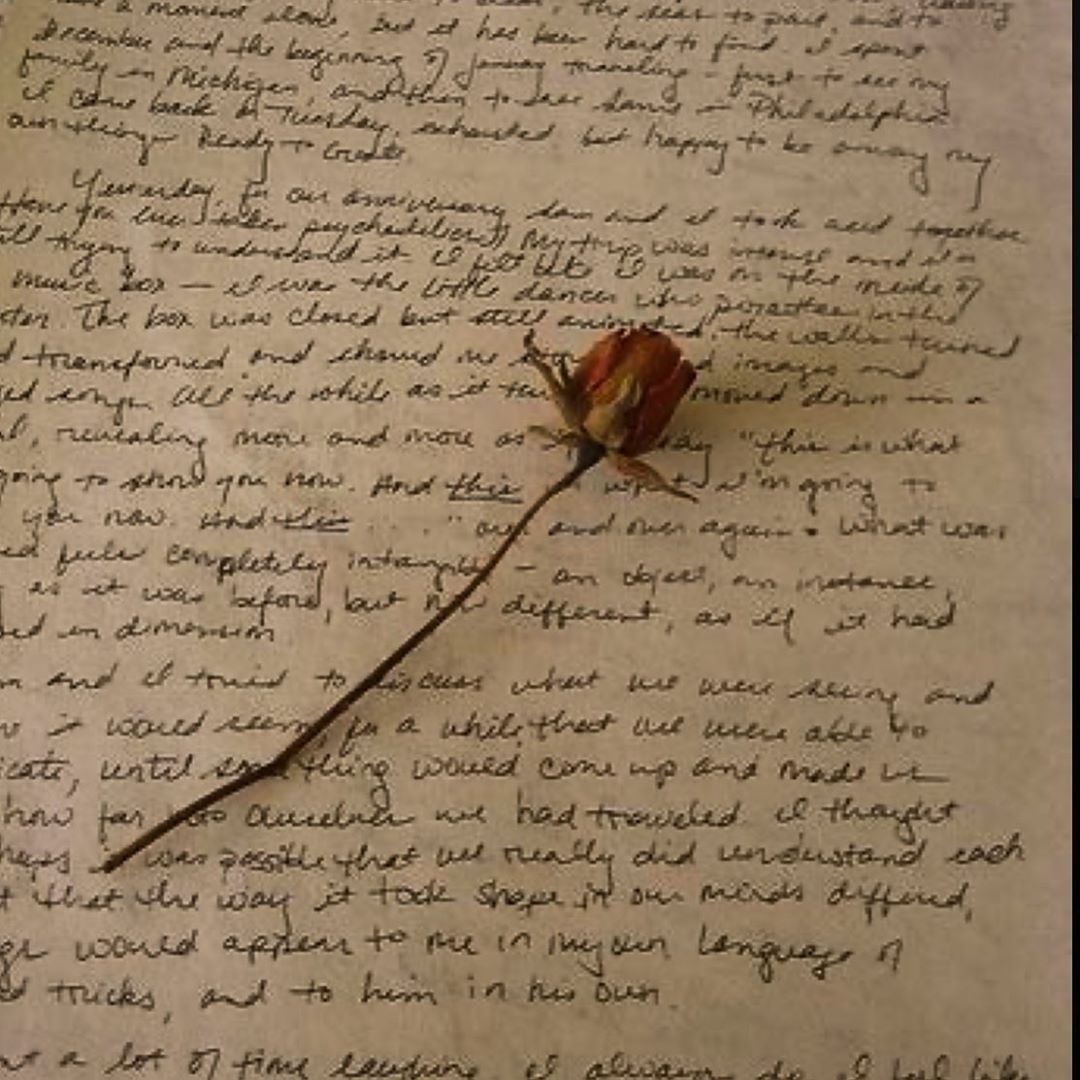 a moment alone, but it has been hard to find. I spent
December and the beginning of January traveling - first to see my
family in Michigan, and then to see Sam's - Philadelphia
I came back on Tuesday, exhausted, but happy to be among my
own things. Ready to create.
Yesterday, for our anniversary Sam and I took acid together
Have you ever taken psychedelics? My trip was intense and I'm
still trying to understand it. I felt like I was on the inside of
music box — I was the little dancer who in the
The box was closed but still animated, the walls turned
transformed and showed me images and
songs. All the while as it moved down in a
revealing more and more as "this is what
going to show you now. And this what I'm going to
you now. And this . . . ." over and over again. What was
feels completely intangible - an object, an instance,
as it was before, but now different, as if it had
in dimension
and I tried to discuss what we were seeing and
it would seem for a while that we were able to
until something would come up and made us
how far into ourselves we had traveled. I thought
was possible that we really did understand each
that the way it took shape in our minds differed,
would appear to me in my own language of
tricks, and to him in his own.
a lot of time laughing. I always do. I feel like